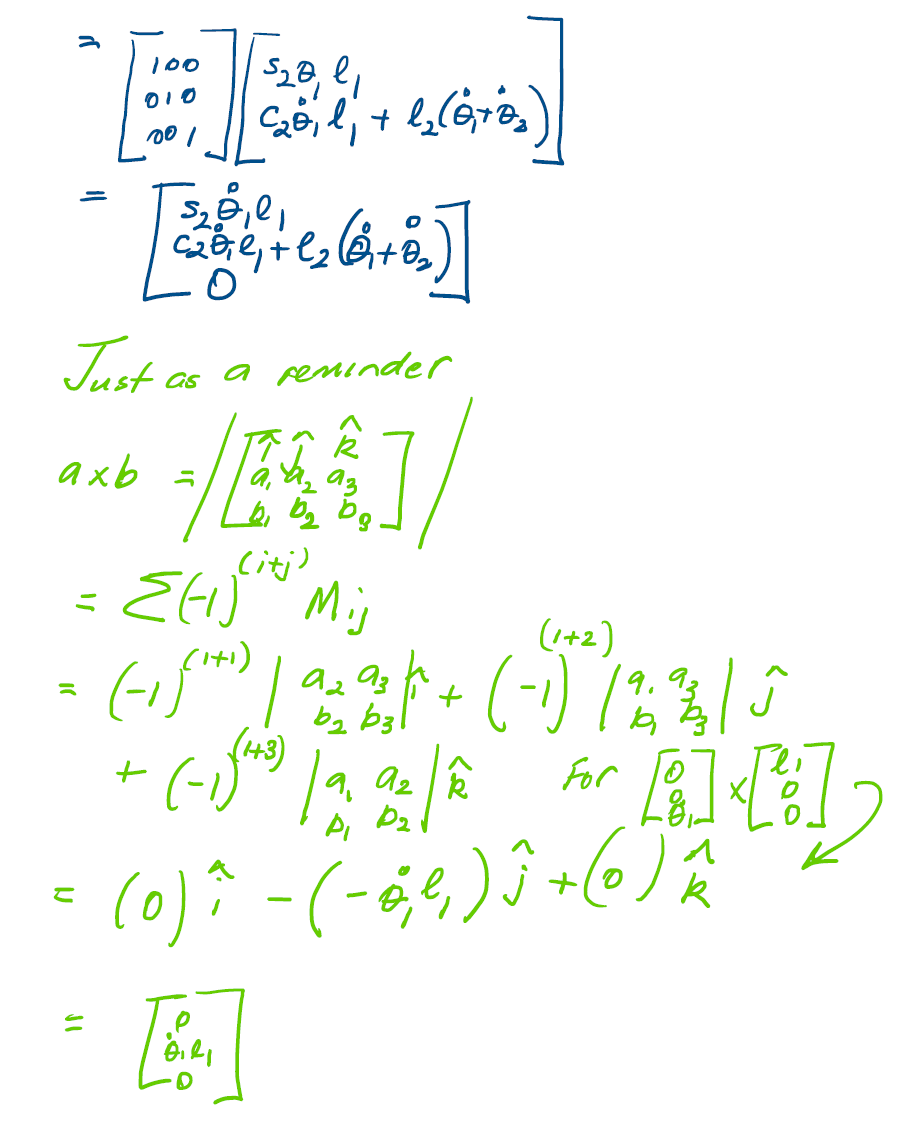 = [1 0 0; 0 1 0; 0 0 1] [s₂θ₁ l₁; c₂θ̇₁ l₁ + l₂(θ̇₁+θ̇₂)]
= [s₂θ̇₁l₁; c₂θ̇₁l₁ + l₂(θ̇₁+θ̇₂); 0]
Just as a reminder
a×b = |[î ĵ k̂; a₁ a₂ a₃; b₁ b₂ b₃]|
= Σ(-1)^(i+j) Mij
= (-1)^(1+1) |a₂ a₃; b₂ b₃| î + (-1)^(1+2) |a₁ a₃; b₁ b₃| ĵ
+ (-1)^(1+3) |a₁ a₂; b₁ b₂| k̂ For [0; 0; θ̇₁] × [l₁; 0; 0]
= (0) î - (-θ̇₁l₁) ĵ + (0) k̂
= [0; θ̇₁l₁; 0]